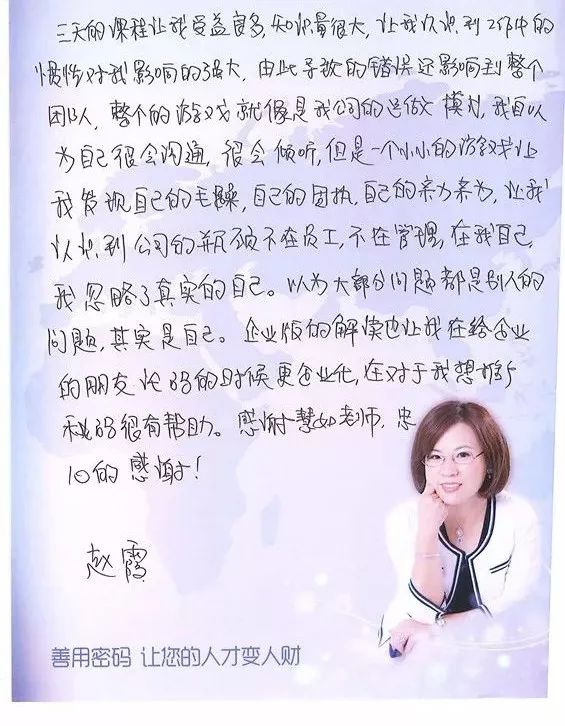 三天的课程让我受益良多,知识量很大,让我认识到工作中的
惯性对我影响的强大,由此导致的错误还影响到整个
团队,整个的游戏就像是我公司的运做模式,我自以
为自己很会沟通,很会倾听,但是一个小小的游戏让
我发现自己的毛躁,自己的固执,自己的亲力亲为,让我
认识到公司的瓶颈不在员工,不在管理,在我自己,
我忽略了真实的自己。以为大部分问题都是别人的
问题,其实是自己。企业版的解读也让我在给企业
的朋友论码的时候更企业化,在对于我想推广
秘码很有帮助。感谢慧如老师,忠
心的感谢!
赵霞
善用密码 让您的人才变人财